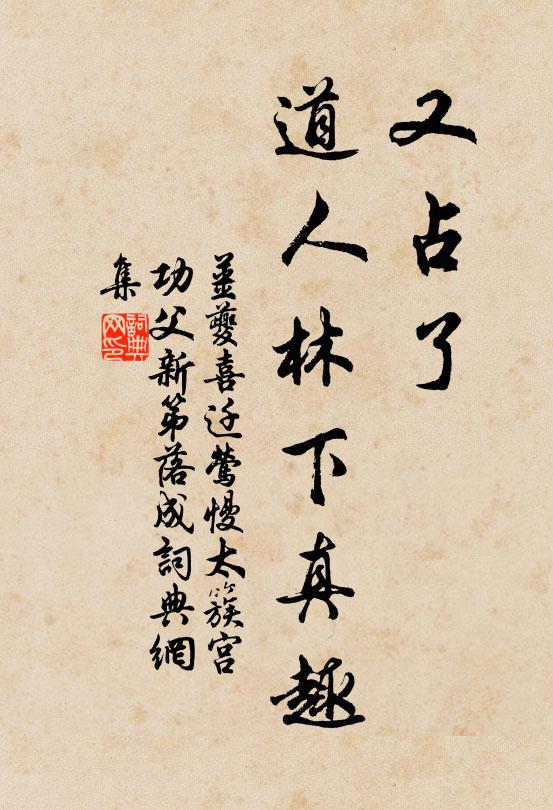 又占了
道人林下真趣
姜夔喜迁鶯慢太簇宫
功父新第落成詞典網
集
詞典
网印